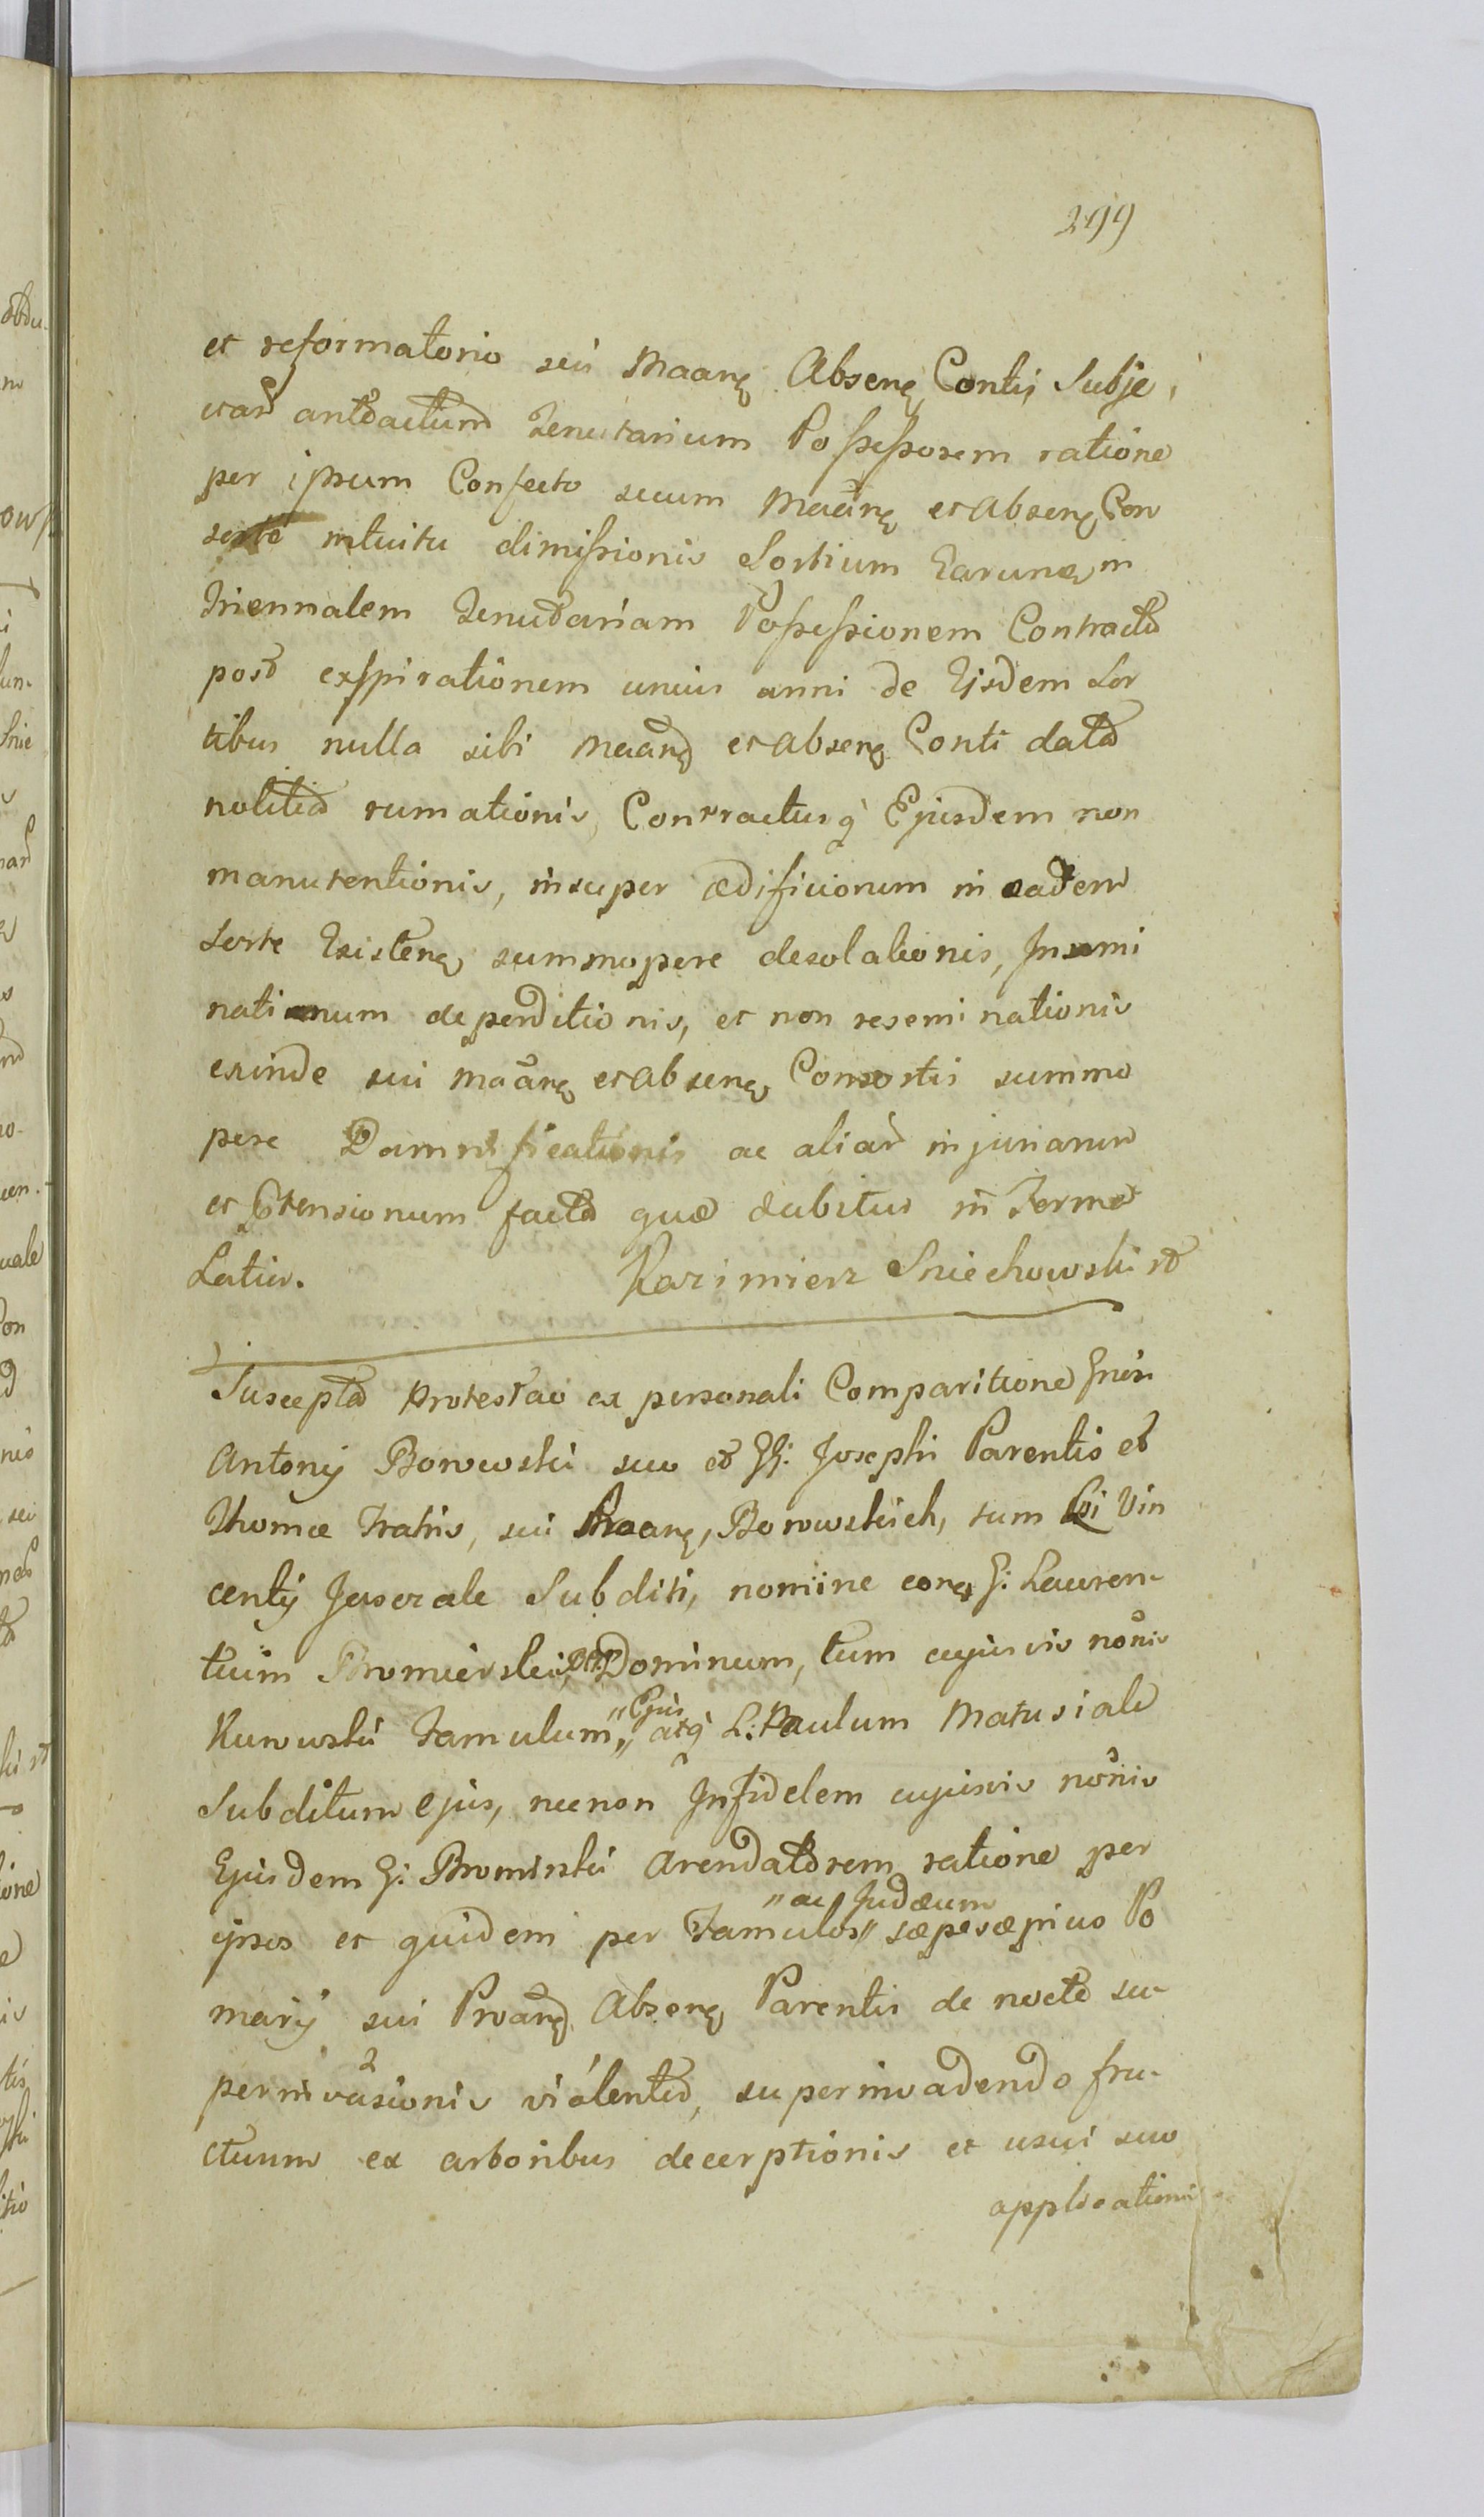 299
et reformatorio seu Maarę Absenę Contis Subje
ctar antdactum Tenutarium Possessorem ratione
per ipsum Confecto secum Maarę et Absenę Con
sorte intuitu dimissionis Sortium Earunę in
Triennalem Tenutariam Possessionem Contractu
post exspirationem unius anni de Eisdem Sor
tibus nulla sibi Maarę et Absenę Conti data
notitia rumationis, Contractusq Ejusdem non
manutentionis, insuper ædificiorum in eadem
Sorte Existenę summopere desolationis, Insemi
nationum deperditionis, et non reseminationis
exinde sui Maarę et Absenę Consortis summo
pere Damnificationis ac aliar injuriarum
et Ptensionum facta quæ dubitus in Forma
Latius. Kazimierz Sniechowski
Suscepta Protestao ex personali Comparitione Gnisi
Antonij Borowski suo et GG: Josephi Parentis et
Thomæ Fratris, sui Maarę, Borowskich, tum Vin
centij Jaszczale Subditi, nomine eorę G: Lauren-
tium Bromierski, Dominum, tum cujusvis nonis
Kurowski Famulum " Ejus " atq L: Paulum Matusiale
Subditum ejus, necnon Infidelem cujusvis nonis
Ejusdem G: Bromirski Arendatorem ratione per
" ac Judæum
ipsos et quidem per Famulos " sæpesæpius Po
marij sui Proarę Absenę Parentis de nocte su-
perinvasionis violenta, superinvadendo fru-
ctuum ex arboribus decerptionis et usui suo
applicationi